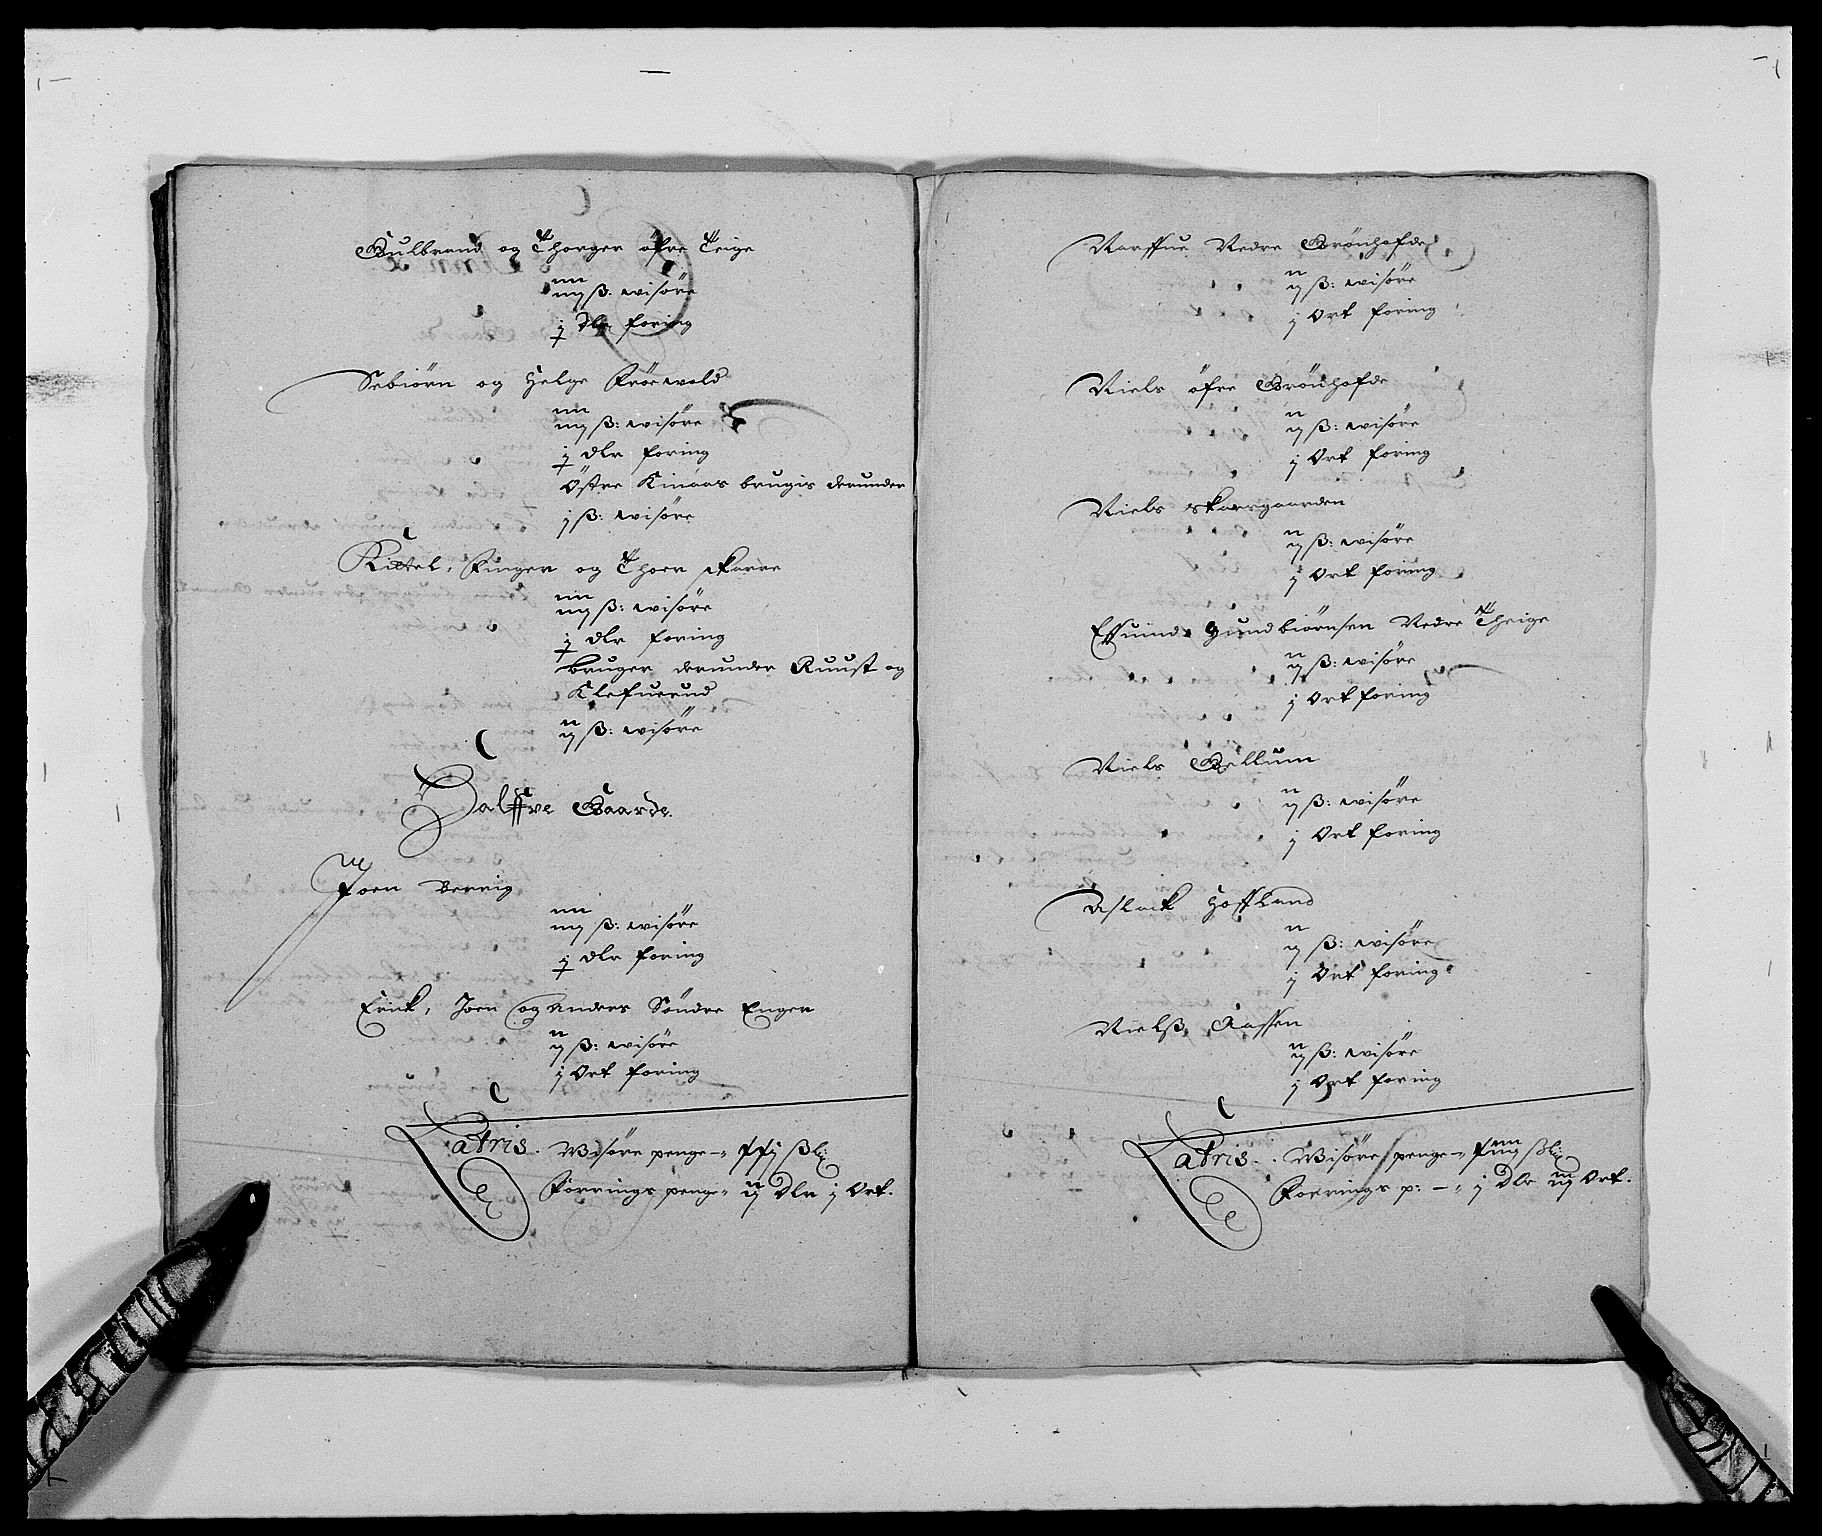 Gulbrand og Thorger öfre Teige
iiij ß: wisöre
j Dlr foring
Sebiörn og Helge Fröswold
iiij ß: wisöre
j dlr foring
Östre Kinaas brugis derunder
j ß: wisöre
Kittel, Finger og Thoer skarre
iiij ß: wisöre
j dlr foring
bruger derunder Ruust og
Klefuerud
ij ß: wisöre
Halffve Gaarde.
Joen Berrig
iiij ß: wisöre
j dlr foring
Erick, Joen og Anders Söndre Enger
ij ß: wisöre
j Ort foring
Latris. Wisöre penge -" xxj ßli
Forrings penge " ij Dlr j Ort.
Narffue Nedre Grönhofde
ij ß: wisöre
j Ort foring
Niels öfre Grönhofde
ij ß: wisöre
j Ort foring
Niels skarsgaarden
ij ß: wisöre
j Ort foring
Effuind Gundbiörnsen Nedre Theige
ij ß: wisöre
j Ort foring
Niels Gellum
ij ß: wisöre
j Ort foring
Aslack Hoffland
ij ß: wisöre
j Ort foring
Nielß Aassen
ij ß: wisöre
j Ort foring
Latris. Wisöre penge -" xiiij ßli
Forrings p: -" j Dlr iij Ort.